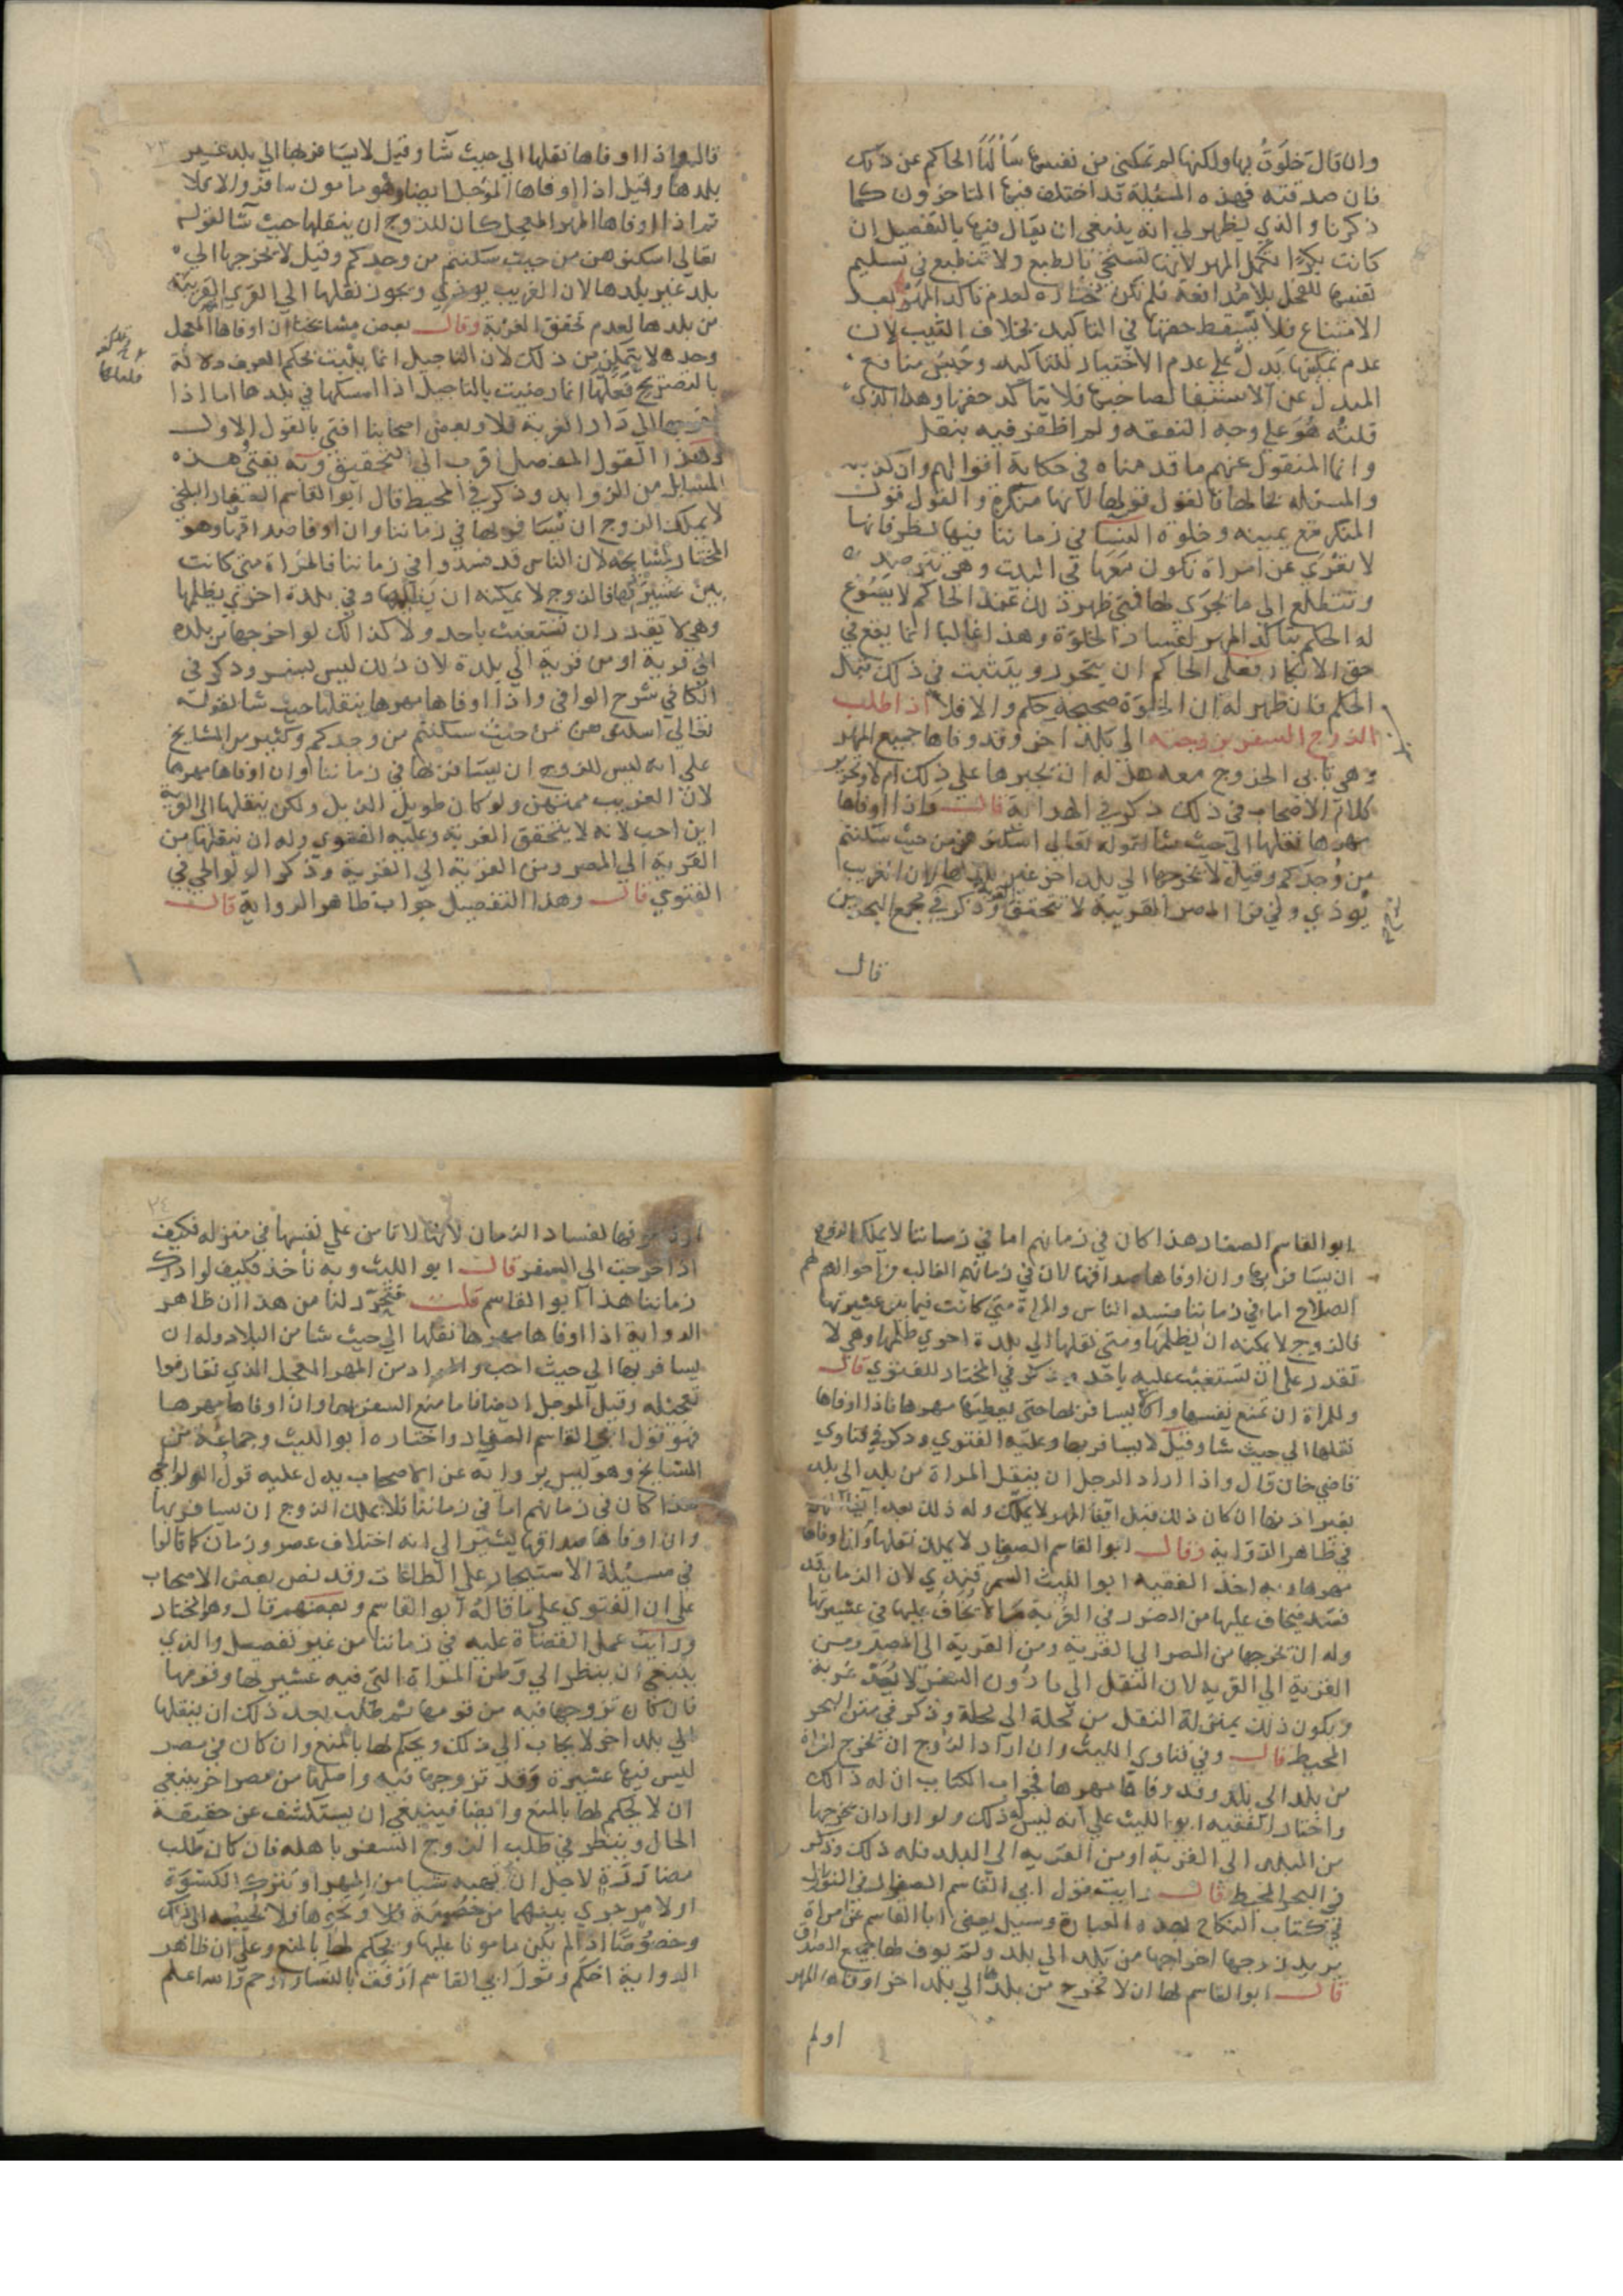 وان قال خلوت بها ولكنها لم تمكني من نفسها سألها الحاكم عن ذلك
فان صدقته فهذه المسئلة قد اختلف فيها المتاخرون كما
ذكرنا والذي يظهر لي انه ينبغي ان يقال فيها بالتفصيل ان
كانت بكرا تكمل المهر لانها تستحي بالطبع ولا تنطبع في تسليم
نفسها للفحل بلا مدافعة فلم تكن مختارة لعدم تاكد المهر بعد
الامتناع فلا يسقط حقها في التاكيد بخلاف الثيب لان
عدم تمكينها يدل على عدم الاختيار للتاكيد وحبس منافع
المبدل عن الاستيفا لصاحبها فلا يتاكد حقها وهذا الذي
قلته هو على وجه التفقه ولم اظفر فيه بنقل
وانما المنقول عنهم ما قدمناه في حكاية اقوالهم وان كذبته
والمسئلة بحالها فالقول قولها لانها منكرة والقول قول
المنكر مع يمينه وخلوة النسا في زماننا فيها نظر فانها
لا تعرى عن امراة تكون معها في البيت وهي تترصد
وتتطلع الى ما يجرى لها فمتى ظهر ذلك عند الحاكم لا يسوغ
له الحكم بتاكد المهر لفساد الخلوة وهذا غالبا انما يقع في
حق الابكار فعلى الحاكم ان يتحرر ويتثبت في ذلك قبل
الحكم فان ظهر له ان الخلوة صحيحة حكم والا فلا اذا طلب
الزوج السفر بزوجته الى بلد اخر وقد وفاها جميع المهر
وهي تابى الخروج معه هل له ان يجبرها على ذلك ام لا وتحرير
كلام الاصحاب في ذلك ذكر في الهداية قال واذا اوفاها
مهرها نقلها الى حيث شا لقوله تعالى اسكنوهن من حيث سكنتم
من وجدكم وقيل لا يخرجها الى بلد اخر غير بلدها لان الغريب
يوذي وفي قرا المصر القريبة لا تتحقق الغربة وذكر في مجمع البحرين
قال
قال واذا اوفاها نقلها الى حيث شا وقيل لا يسافر بها الى بلد غير
بلدها وقيل اذا اوفاها المؤجل ايضا وهو مامون سافر والا فلا
ثم اذا اوفاها المهر المعجل كان للزوج ان ينقلها حيث شا لقوله
تعالى اسكنوهن من حيث سكنتم من وجدكم وقيل لا يخرجها الى
بلد غير بلدها لان الغريب يوذي ويجوز نقلها الى القرى القريبة
من بلدها لعدم تحقق الغربة وقال بعض مشايخنا ان اوفاها المعجل
وحده لا يتمكن من ذلك لان التاجيل انما يثبت بحكم العرف دلالة
بالتصريح فلعلها انما رضيت بالتاجيل اذا امسكها في بلدها اما اذا
اخرجها الى دار الغربة فلا وبعض اصحابنا افتى بالقول الاول
وهذا القول المفصل اقرب الى التحقيق وبه يفتى هذه
المسايل من الزوايد وذكر في المحيط قال ابو القاسم الصفار البلخي
لا يملك الزوج ان يسافر بها في زماننا وان اوفا صداقها وهو
المختار لمشايخه لان الناس قد فسدوا في زماننا فالمراة متى كانت
بين عشيرتها فالزوج لا يمكنه ان يظلمها وفي بلدة اخرى يظلمها
وهي لا تقدر ان تستغيث باحد ولا كذلك لو اخرجها من بلده
الى قرية او من قرية الى بلدة لان ذلك ليس بسفر وذكر في
الكافي شرح الوافي واذا اوفاها مهرها ينقلها حيث شا لقوله
تعالى اسكنوهن من حيث سكنتم من وجدكم وكثير من المشايخ
على انه ليس للزوج ان يسافر بها في زماننا وان اوفاها مهرها
لان الغريب ممتهن ولو كان طويل الذيل ولكن ينقلها الى القرية
اين احب لانه لا يتحقق الغربة وعليه الفتوى وله ان ينقلها من
القرية الى المصر ومن القرية الى القرية وذكر الولوالجي في
الفتوى قال وهذا التفصيل جواب ظاهر الرواية قال
ابو القاسم الصفار هذا كان في زمانهم اما في زماننا لا يملك الزوج
ان يسافر بها وان اوفاها صداقها لان في زمانهم الغالب من احوالهم
الصلاح اما في زماننا فسد الناس والمراة متى كانت فيما بين عشيرتها
فالزوج لا يمكنه ان يظلمها ومتى نقلها الى بلدة اخرى ظلمها وهي لا
تقدر على ان تستغيث عليه باحد وذكر في المختار للفتوى قال
وللمراة ان تمنع نفسها وان يسافر بها حتى يعطيها مهرها فاذا اوفاها
نقلها الى حيث شا وقيل لا يسافر بها وعليه الفتوى وذكر في فتاوي
قاضي خان قال واذا اراد الرجل ان ينقل المراة من بلد الى بلد
بغير اذنها ان كان ذلك قبل ايفا المهر لا يملك وله ذلك بعد ايفا المهر
في ظاهر الرواية وقال ابو القاسم الصفار لا يملك نقلها وان اوفاها
مهرها وبه اخذ الفقيه ابو الليث السمرقندي لان الزمان قد
فسد فيخاف عليها من الضرر في الغربة ما لا يخاف عليها في عشيرتها
وله ان يخرجها من المصر الى القرية ومن القرية الى المصر ومن
القرية الى القرية لان النقل الى ما دون السفر لا يعد غربة
ويكون ذلك بمنزلة النقل من محلة الى محلة وذكر في متن البحر
المحيط قال وفي فتاوي الليث وان اراد الزوج ان يخرج امراة
من بلد الى بلد وقد وفاها مهرها فجواب الكتاب ان له ذلك
واختار الفقيه ابو الليث على انه ليس له ذلك ولو اراد ان يخرجها
من البلد الى القرية او من القرية الى البلد فله ذلك وذكر
في البحر المحيط قال رايت قول ابي القاسم الصفار في النوازل
في كتاب النكاح بهذه العبارة وسيل يعني ابا القاسم عن امراة
يريد زوجها اخراجها من بلد الى بلد ولم يوف لها جميع الصداق
قال ابو القاسم لها ان لا تخرج من بلدها الى بلد اخر اوفاها المهر
اولم
٣٤
يوفها لفساد الزمان لانها لا تامن على نفسها في منزله فكيف
اذا خرجت الى السفر قال ابو الليث وبه ناخذ فكيف لو ادرك
زماننا هذا ابو القاسم قلت فتحرر لنا من هذا ان ظاهر
الرواية اذا اوفاها مهرها نقلها الى حيث شا من البلاد وله ان
يسافر بها الى حيث احب والمراد من المهر المعجل الذي تعارفوا
تعجيله وقيل المؤجل ايضا فاما منع السفر بها وان اوفاها مهرها
فهو قول ابي القاسم الصفار واختاره ابو الليث وجماعة من
المشايخ وهو ليس برواية عن الاصحاب يدل عليه قول الولوالجي
هذا كان في زمانهم اما في زماننا فلا يملك الزوج ان يسافر بها
وان اوفاها صداقها يشير الى انه اختلاف عصر وزمان كما قالوا
في مسئلة الاستيجار على الطاعات وقد نص بعض الاصحاب
على ان الفتوى على ما قاله ابو القاسم وبعضهم قال وهو المختار
ورايت عمل القضاة عليه في زماننا من غير تفصيل والذي
ينبغي ان ينظر الى وطن المراة التي فيه عشيرتها وقومها
فان كان تزوجها فيه من قومها ثم طلب بعد ذلك ان ينقلها
الى بلد اخر لا يجاب الى ذلك ويحكم لها بالمنع وان كان في مصر
ليس فيها عشيرة وقد تزوجها فيه واصلها من مصر اخر ينبغي
ان لا يحكم لها بالمنع وايضا فينبغي ان يستكشف عن حقيقة
الحال وينظر في طلب الزوج السفر باهله فان كان طلب
مضاررة لاجل ان تهبه شيا من المهر او تترك الكسوة
او لامر جرى بينهما من خصومة ونحوها فلا يجيبه الى ذلك
وخصوصا اذا لم يكن مامونا عليها ويحكم لها بالمنع وعلى ان ظاهر
الرواية احكم وقول ابي القاسم ارفق بالنسا وارحم والله اعلم